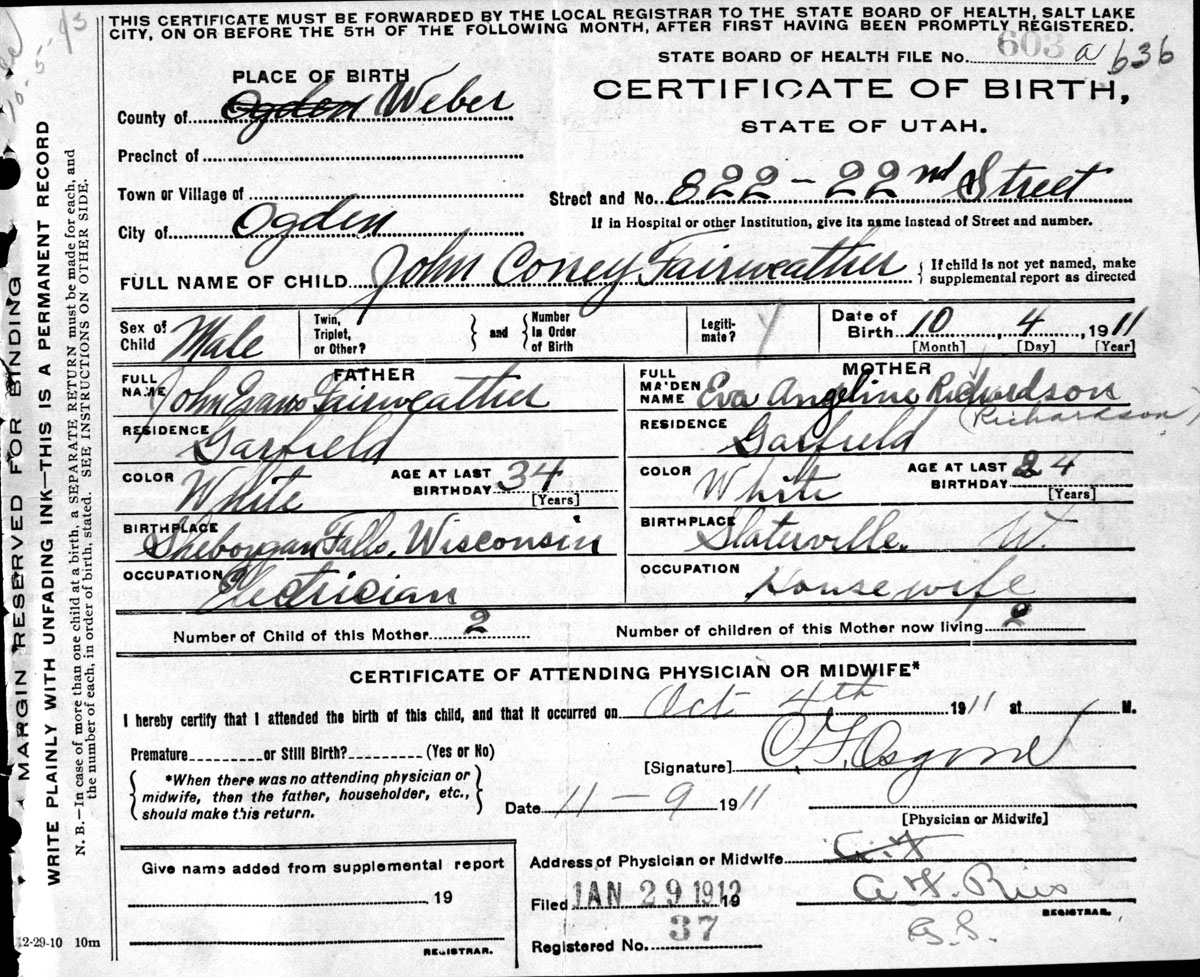 THIS CERTIFICATE MUST BE FORWARDED BY THE LOCAL REGISTRAR TO THE STATE BOARD OF HEALTH, SALT LAKE
CITY, ON OR BEFORE THE 5TH OF THE FOLLOWING MONTH, AFTER FIRST HAVING BEEN PROMPTLY REGISTERED.
STATE BOARD OF HEALTH FILE No. 603 a 636
PLACE OF BIRTH
CERTIFICATE OF BIRTH,
STATE OF UTAH.
County of Ogden Weber
Precinct of
Town or Village of
Street and No. 822 - 22nd Street
City of Ogden
If in Hospital or other Institution, give its name instead of Street and number.
FULL NAME OF CHILD John Coney Fairweather
{ If child is not yet named, make
supplemental report as directed
Sex of Child Male
Twin, Triplet, or Other? } and { Number In Order of Birth
Legiti-mate? Y
Date of Birth 10 4, 1911
[Month] [Day] [Year]
FATHER
FULL NAME John Evans Fairweather
RESIDENCE Garfield
COLOR White
AGE AT LAST BIRTHDAY 34
[Years]
BIRTHPLACE Sheboygan Falls, Wisconsin
OCCUPATION Electrician
MOTHER
FULL MAIDEN NAME Eva Angeline Richardson
(Richardson)
RESIDENCE Garfield
COLOR White
AGE AT LAST BIRTHDAY 24
[Years]
BIRTHPLACE Slaterville. W.
OCCUPATION Housewife
Number of Child of this Mother 2
Number of children of this Mother now living 2
CERTIFICATE OF ATTENDING PHYSICIAN OR MIDWIFE*
I hereby certify that I attended the birth of this child, and that it occurred on Oct 4th 1911 at M.
Premature or Still Birth? (Yes or No)
[Signature]
{ *When there was no attending physician or
midwife, then the father, householder, etc.,
should make this return. }
Date 11 - 9 1911
[Physician or Midwife]
Give name added from supplemental report
19
REGISTRAR.
Address of Physician or Midwife
Filed JAN 29 1912 19
REGISTRAR.
Registered No. 37
12-29-10 10m
MARGIN RESERVED FOR BINDING
WRITE PLAINLY WITH UNFADING INK—THIS IS A PERMANENT RECORD
N. B.—In case of more than one child at a birth, a SEPARATE RETURN must be made for each, and
the number of each, in order of birth, stated. SEE INSTRUCTIONS ON OTHER SIDE.